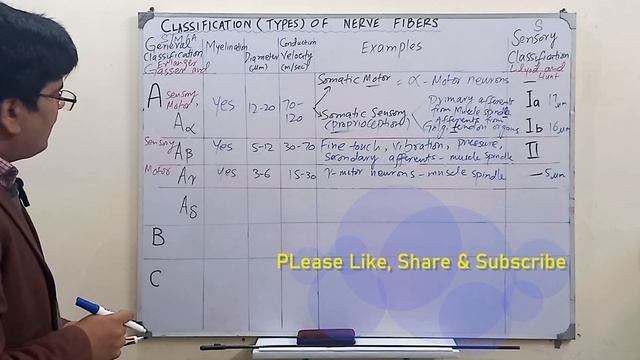 CLASSIFICATION (TYPES) OF NERVE FIBERS
General Classification Erlanger Gasser and
Myelination
Diameter (μm)
Conduction Velocity (m/sec)
Examples
S
Sensory Classification Lloyd and Hunt
A sensory Motor,
Aα
Yes
12-20
70-120
Somatic Motor = α- Motor neurons
Somatic Sensory (proprioception)
Primary afferents from Muscle spindle
Afferents from Golgi tendon organs
Ia 17μm
Ib 16μm
Sensory
Aβ
Yes
5-12
30-70
Fine touch, vibration, pressure, secondary afferents - muscle spindle
II
Motor
Aγ
Yes
3-6
15-30
γ-motor neurons - muscle spindle
— 5μm
Aδ
B
C
PLease Like, Share & Subscribe